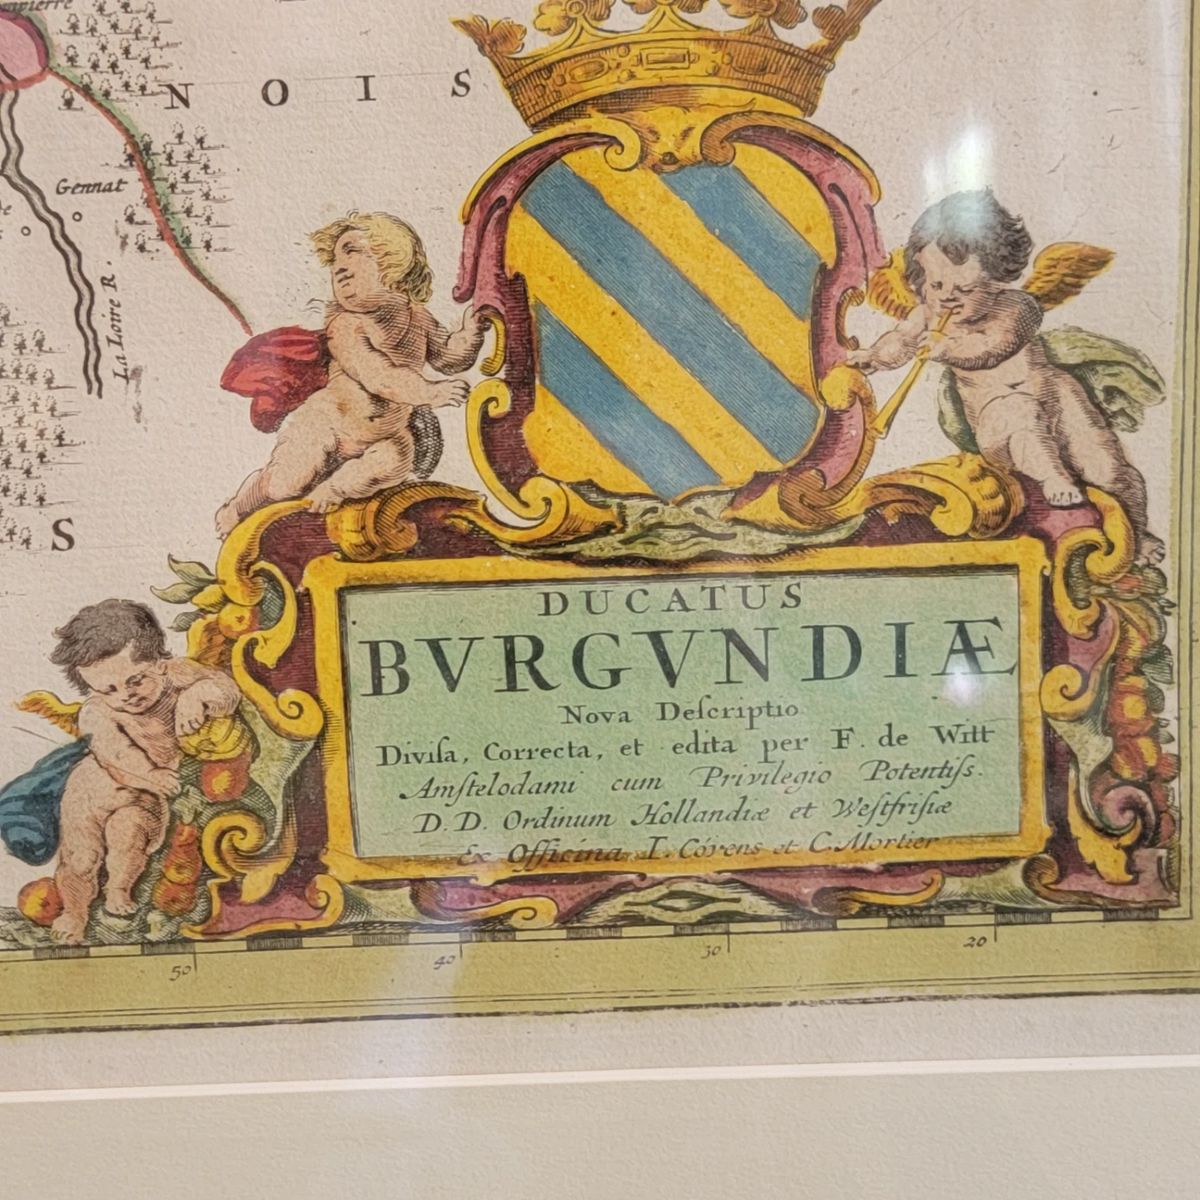 N O I S
Gennat
La Loire R.
S
DUCATUS
BVRGVNDIÆ
Nova Deſcriptio
Diviſa, Correcta, et edita per F. de Witt
Amſtelodami cum Privilegio Potentiſs.
D.D. Ordinum Hollandiæ et Weſtfriſiæ
Ex Officina I. Cóvens et C. Mortier
50 40 30 20